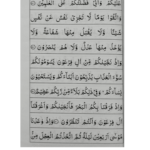 عَلَيْكُمْ وَأَنِّي فَضَّلْتُكُمْ عَلَى الْعَٰلَمِينَ
وَاتَّقُوا يَوْمًا لَا تَجْزِي نَفْسٌ عَنْ نَفْسٍ
شَيْئًا وَلَا يُقْبَلُ مِنْهَا شَفَاعَةٌ وَلَا
يُؤْخَذُ مِنْهَا عَدْلٌ وَلَا هُمْ يُنْصَرُونَ
وَإِذْ نَجَّيْنَٰكُمْ مِنْ آلِ فِرْعَوْنَ يَسُومُونَكُمْ
سُوءَ الْعَذَابِ يُذَبِّحُونَ أَبْنَاءَكُمْ وَيَسْتَحْيُونَ
نِسَاءَكُمْ وَفِي ذَٰلِكُمْ بَلَاءٌ مِنْ رَبِّكُمْ عَظِيمٌ
وَإِذْ فَرَقْنَا بِكُمُ الْبَحْرَ فَأَنْجَيْنَٰكُمْ وَأَغْرَقْنَا
آلَ فِرْعَوْنَ وَأَنْتُمْ تَنْظُرُونَ وَإِذْ وَٰعَدْنَا
مُوسَىٰ أَرْبَعِينَ لَيْلَةً ثُمَّ اتَّخَذْتُمُ الْعِجْلَ مِنْ